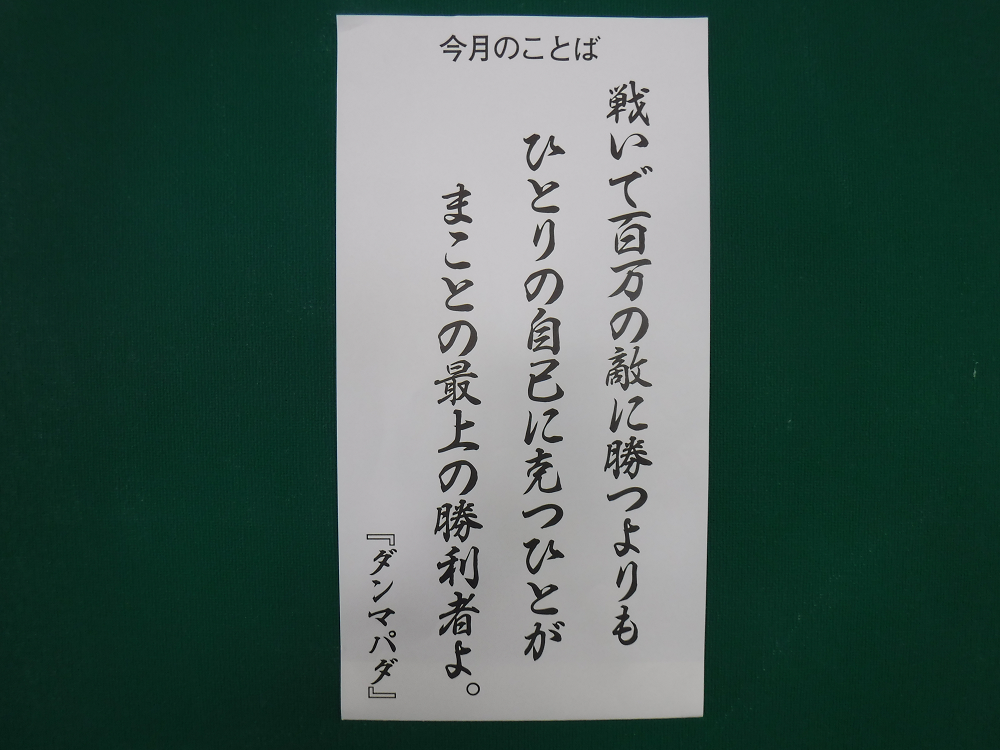 今月のことば
戦いで百万の敵に勝つよりも
ひとりの自己に克つひとが
まことの最上の勝利者よ。
『ダンマパダ』